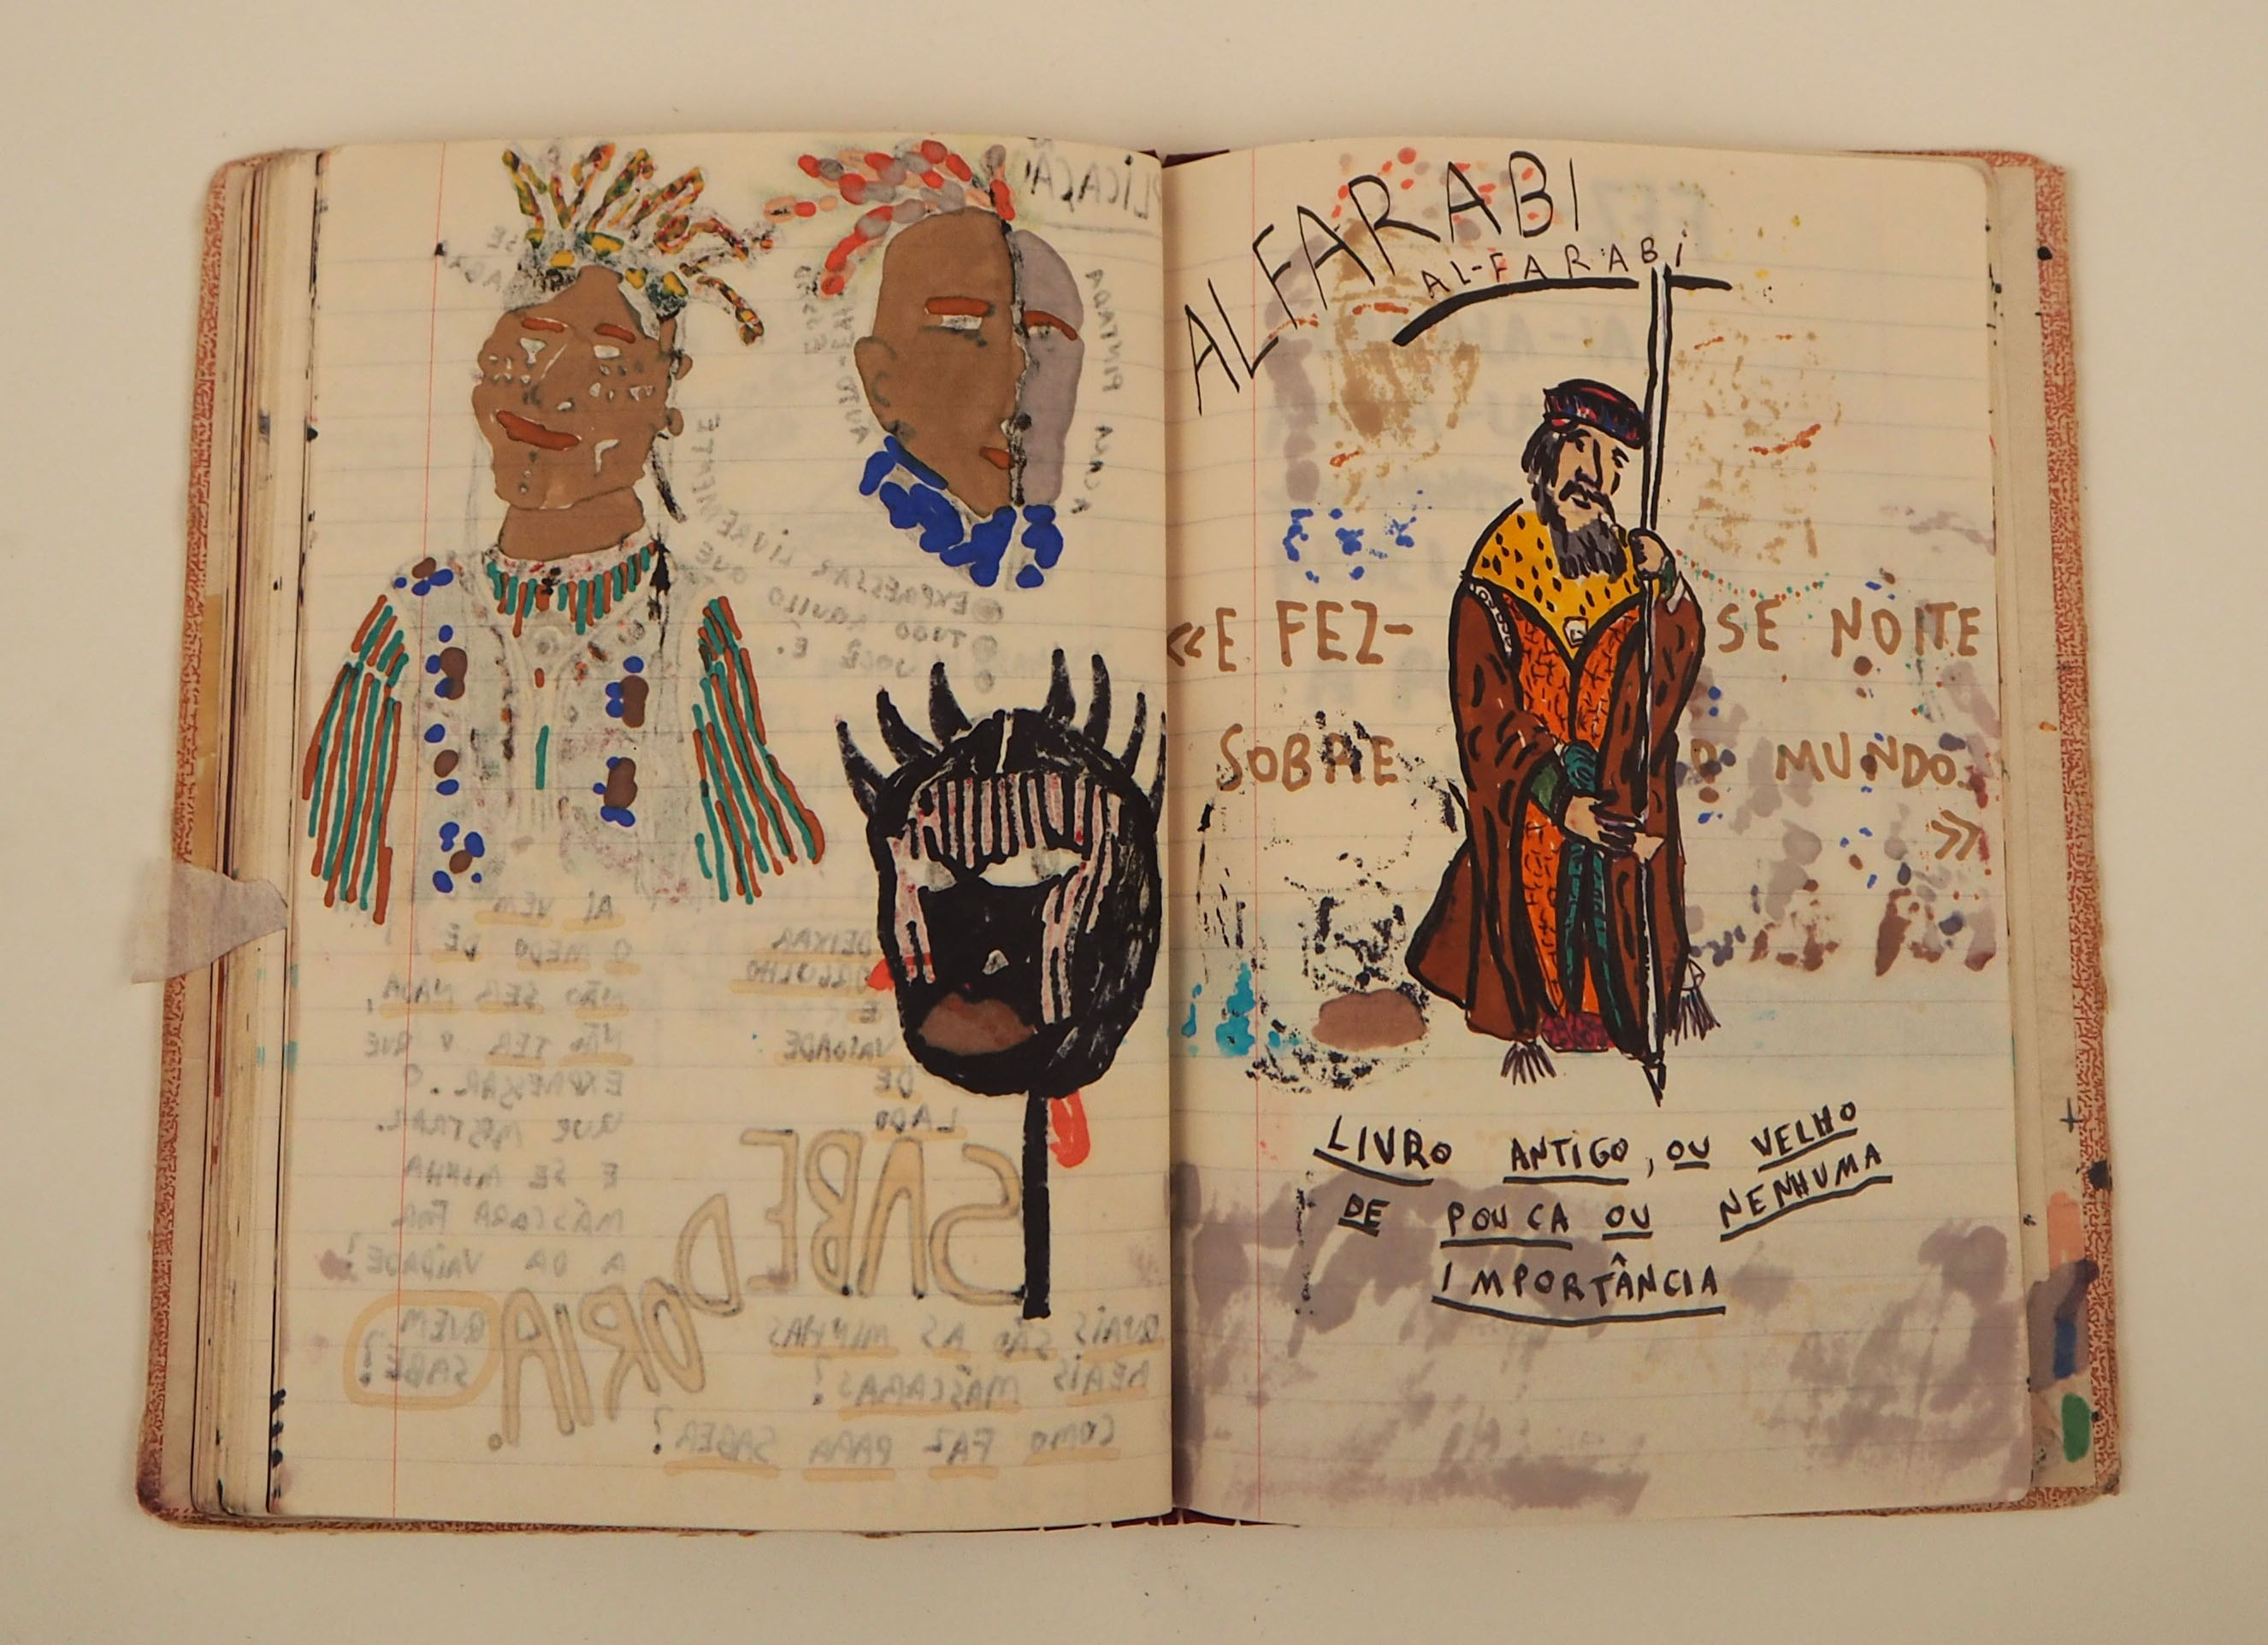 A CARA PINTADA
EXPRESSAR LIVREMENTE
TUDO AQUILO QUE
VOCÊ É.
AÍ VEM
O MEDO DE
NÃO SER NADA,
NÃO TER O QUE
EXPRESSAR. O
QUE MOSTRAR.
E SE MINHA
MÁSCARA FOR
A DA VAIDADE?
DEIXAR
ORGULHO
E
VAIDADE
DE
LADO
SABEDORIA.
QUEM
SABE?
QUAIS SÃO AS MINHAS
REAIS MÁSCARAS?
COMO FAZ PARA SABER?
ALFARABI
AL-FARABI
«E FEZ-SE NOITE
SOBRE O MUNDO.
»
LIVRO ANTIGO, OU VELHO
DE POUCA OU NENHUMA
IMPORTÂNCIA